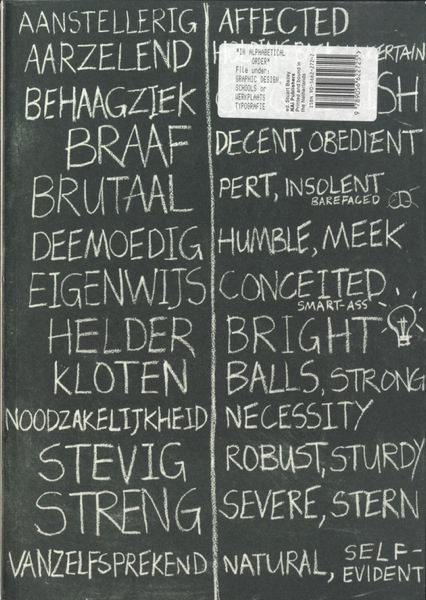 AANSTELLERIG AFFECTED
AARZELEND
BEHAAGZIEK
BRAAF DECENT, OBEDIENT
BRUTAAL PERT, INSOLENT
BAREFACED
DEEMOEDIG HUMBLE, MEEK
EIGENWIJS CONCEITED
SMART-ASS
HELDER BRIGHT
KLOTEN BALLS, STRONG
NOODZAKELIJKHEID NECESSITY
STEVIG ROBUST, STURDY
STRENG SEVERE, STERN
VANZELFSPREKEND NATURAL, SELF-
EVIDENT
"IN ALPHABETICAL
ORDER"
File under:
GRAPHIC DESIGN,
SCHOOLS or
WERKPLAATS
TYPOGRAFIE
ed. Stuart Bailey
NAi Publishers
Printed and bound in
the Netherlands